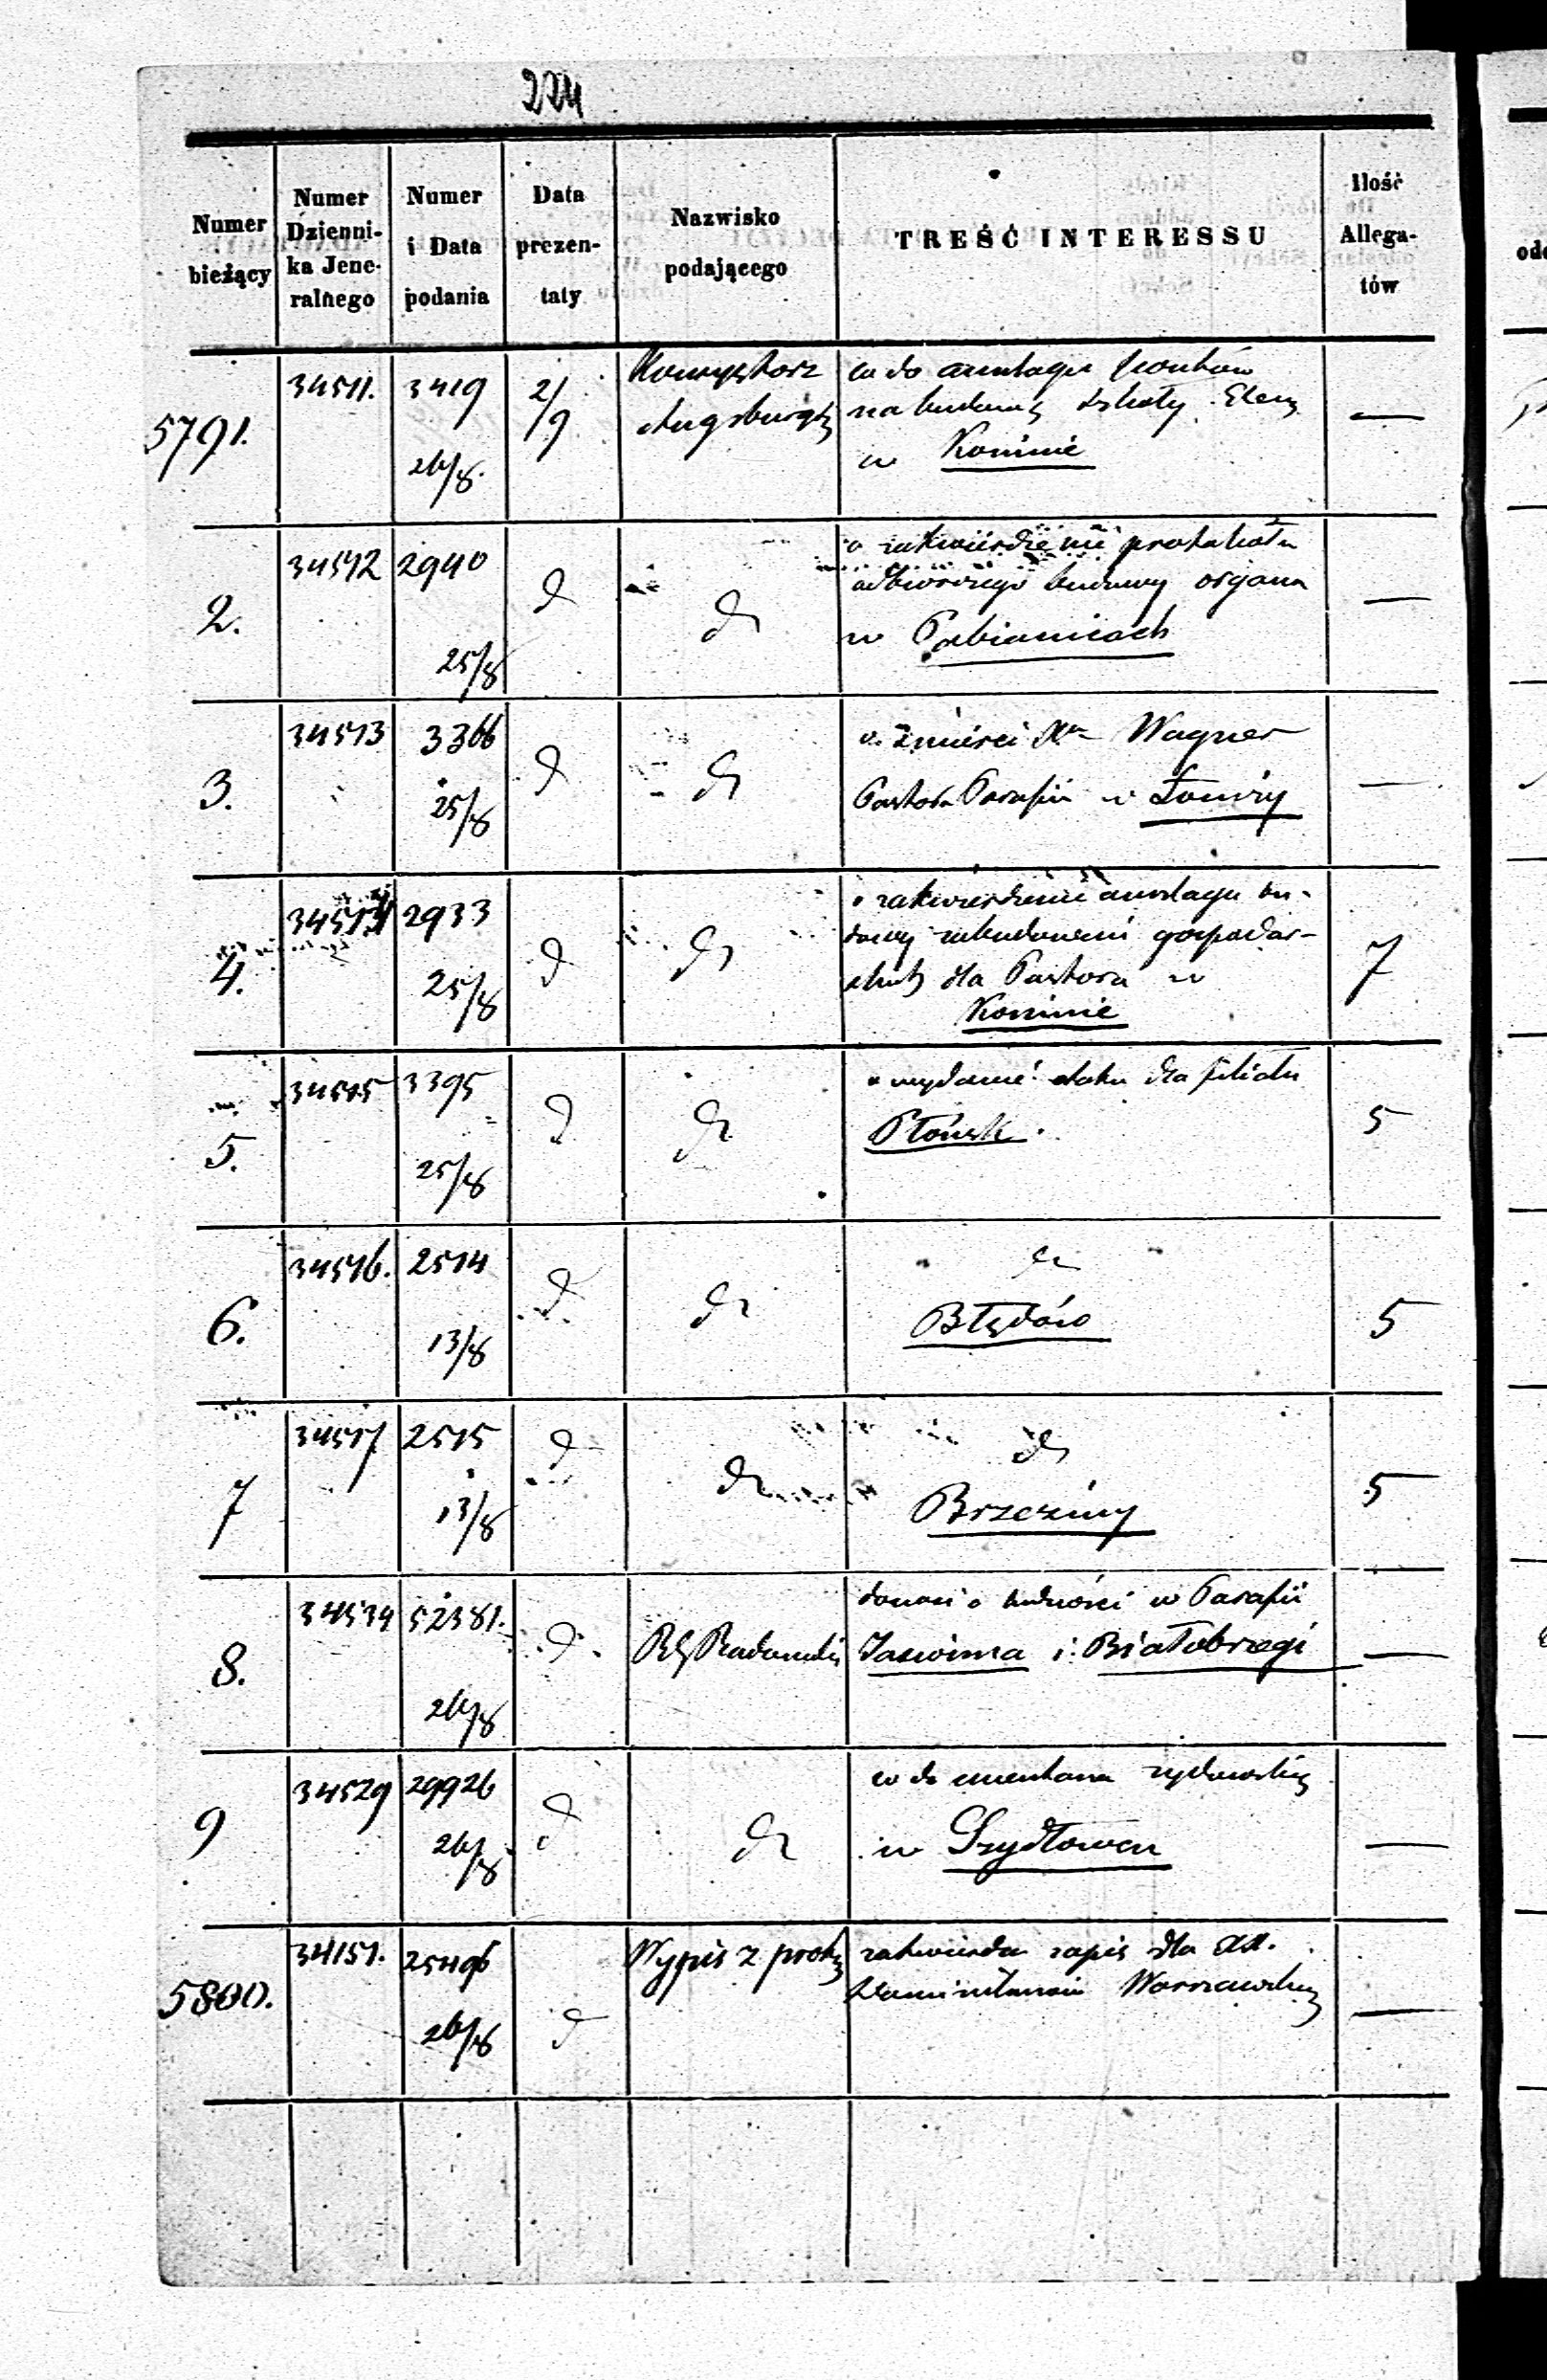 224
Numer bieżący
Numer Dzienni-ka Jene-ralnego
Numer i Data podania
Data prezen-taty
Nazwisko podającego
TREŚĆ INTERESSU
Ilość Allega-tów
5791. 34511. 3419 26/8. 2/9 Konsystorz Augsburgs co do anszlagu kosztów
na budowę szkoły Elem
w Koninie —
2. 34512 2940 25/8 d d o zatwierdzenie protokołu
odbiorczego budowy organu
w Pabianicach —
3. 34513 3366 25/8 d d o śmierci Xa Wagner
Pastora Parafii w Łomży —
4. 34514 2933 25/8 d d o zatwierdzenie anszlagu bu-
dowy zabudowań gospodar-
skich dla Pastora w
Koninie 7
5. 34515 3395 25/8 d d o wydanie etatu dla filiału
Płońsk. 5
6. 34516. 2514 13/8 d d d
Błędów 5
7 34517 2515 13/8 d d d
Brzeziny 5
8. 34534 52381. 26/8 d RG Radomski donosi o ludności w Parafii
i Białobrzegi —
9 34529 29926 26/8 d d co do cmentarza żydowskieg
w Szydłowcu —
5800. 34151. 25496 26/8 d Wypis z prot zatwierdza zapis dla XX.
Warszawskieg —